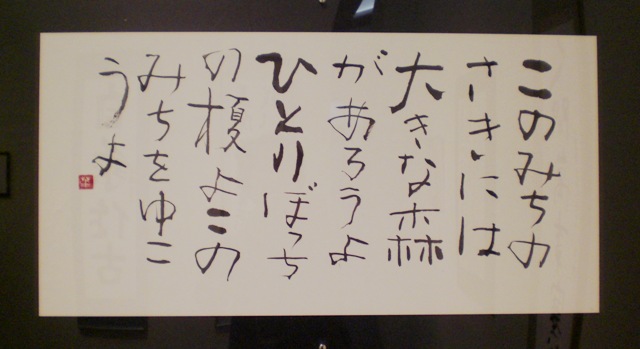 このみちの
さきには
大きな森
があろうよ
ひとりぼっち
の榎よこの
みちをゆこ
うよ